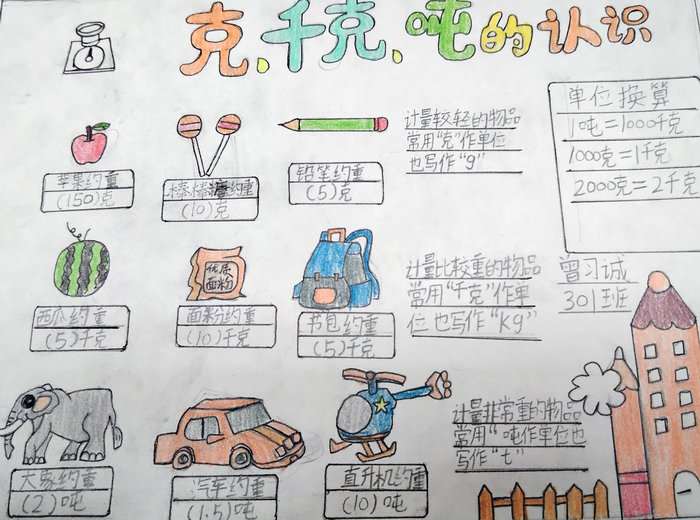 克、千克、吨的认识
苹果约重
(150)克
棒棒糖约重
(10)克
铅笔约重
(5)克
计量较轻的物品
常用“克”作单位
也写作“g”
单位换算
1吨=1000千克
1000克=1千克
2000克=2千克
西瓜约重
(5)千克
优质
面粉
面粉约重
(10)千克
书包约重
(5)千克
计量比较重的物品
常用“千克”作单
位也写作“Kg”
曾习诚
301班
大象约重
(2)吨
汽车约重
(1.5)吨
直升机约重
(10)吨
计量非常重的物品
常用“吨作单位也
写作“t”